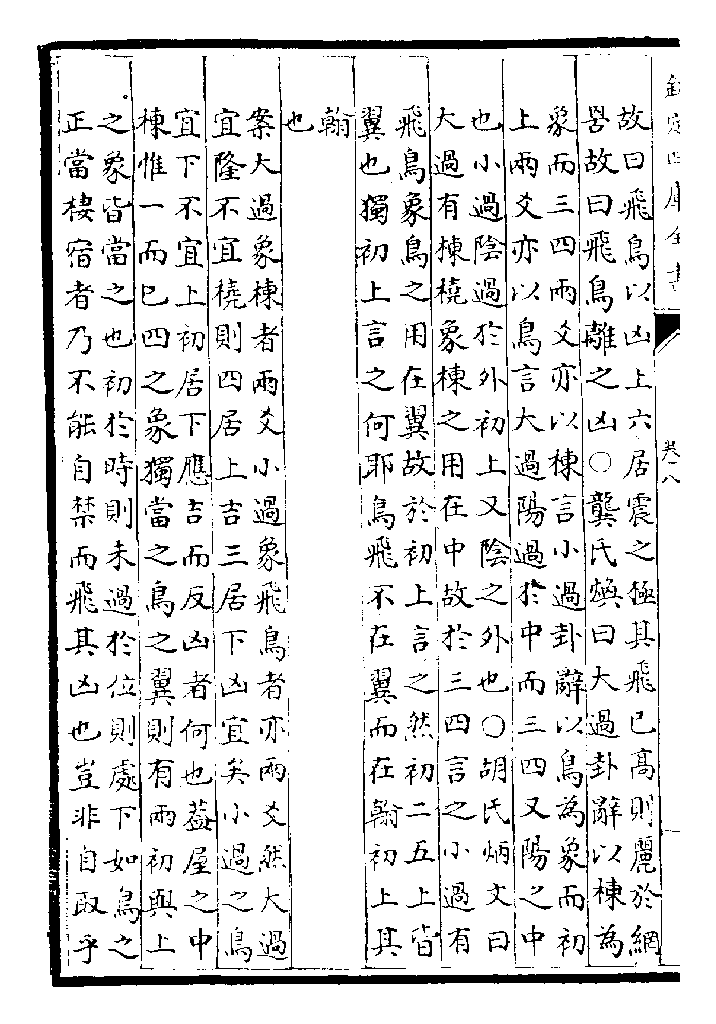 欽定四庫全書
卷八
故曰飛鳥以凶上六居震之極其飛已髙則麗於網
罟故曰飛鳥離之凶○龔氏煥曰大過卦辭以棟為
象而三四兩爻亦以棟言小過卦辭以鳥為象而初
上兩爻亦以鳥言大過陽過於中而三四又陽之中
也小過陰過於外初上又陰之外也○胡氏炳文曰
大過有棟橈象棟之用在中故於三四言之小過有
飛鳥象鳥之用在翼故於初上言之然初二五上皆
翼也獨初上言之何耶鳥飛不在翼而在翰初上其
翰
也
案大過象棟者兩爻小過象飛鳥者亦兩爻然大過
宜隆不宜橈則四居上吉三居下凶宜矣小過之鳥
宜下不宜上初居下應吉而反凶者何也葢屋之中
棟惟一而已四之象獨當之鳥之翼則有兩初與上
之象皆當之也初於時則未過於位則處下如鳥之
正當棲宿者乃不能自禁而飛其凶也豈非自取乎